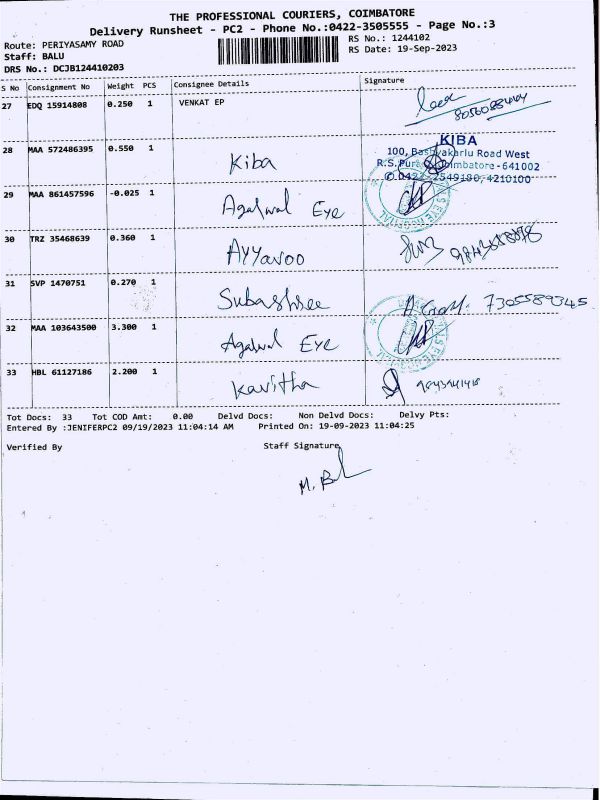 THE PROFESSIONAL COURIERS, COIMBATORE
Delivery Runsheet - PC2 - Phone No.:0422-3505555 - Page No.:3
Route: PERIYASAMY ROAD
RS No.: 1244102
Staff: BALU
RS Date: 19-Sep-2023
DRS No.: DCJB124410203
S No Consignment No Weight PCS Consignee Details Signature
27 EDQ 15914808 0.250 1 VENKAT EP
28 MAA 572486395 0.550 1 Kiba
KIBA
100, Road West
R.S. Coimbatore - 641002
2549180, 4210100
29 MAA 861457596 -0.025 1 Agalwal Eye
30 TRZ 35468639 0.360 1 Ayyavoo
31 SVP 1470751 0.270 1 Subashree 7305589345
32 MAA 103643500 3.300 1 Agalwal Eye
33 HBL 61127186 2.200 1 Kavitha
Tot Docs: 33 Tot COD Amt: 0.00 Delvd Docs: Non Delvd Docs: Delvy Pts:
Entered By :JENIFERPC2 09/19/2023 11:04:14 AM Printed On: 19-09-2023 11:04:25
Verified By Staff Signature